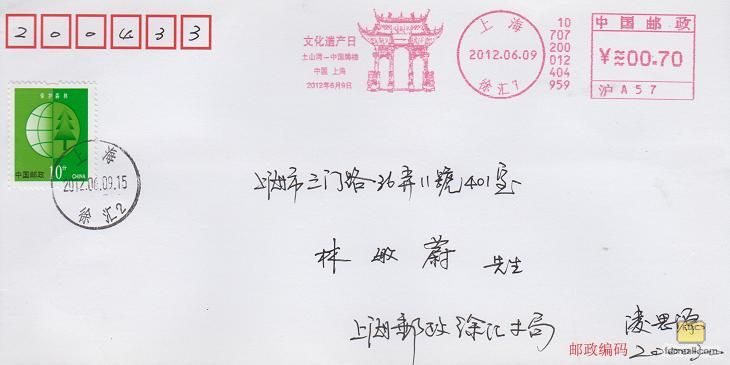 200433
文化遗产日
土山湾—中国牌楼
中国 上海
2012年6月9日
上海
2012.06.09
徐汇1
10
707
200
012
404
959
中国邮政
¥≈00.70
沪 A57
保护森林
中国邮政
10分
CHINA
上海
2012.06.09.15
徐汇2
上海市三门路36弄11号401室
林敏蔚 先生
上海邮政徐汇支局
凌思源
邮政编码 200030